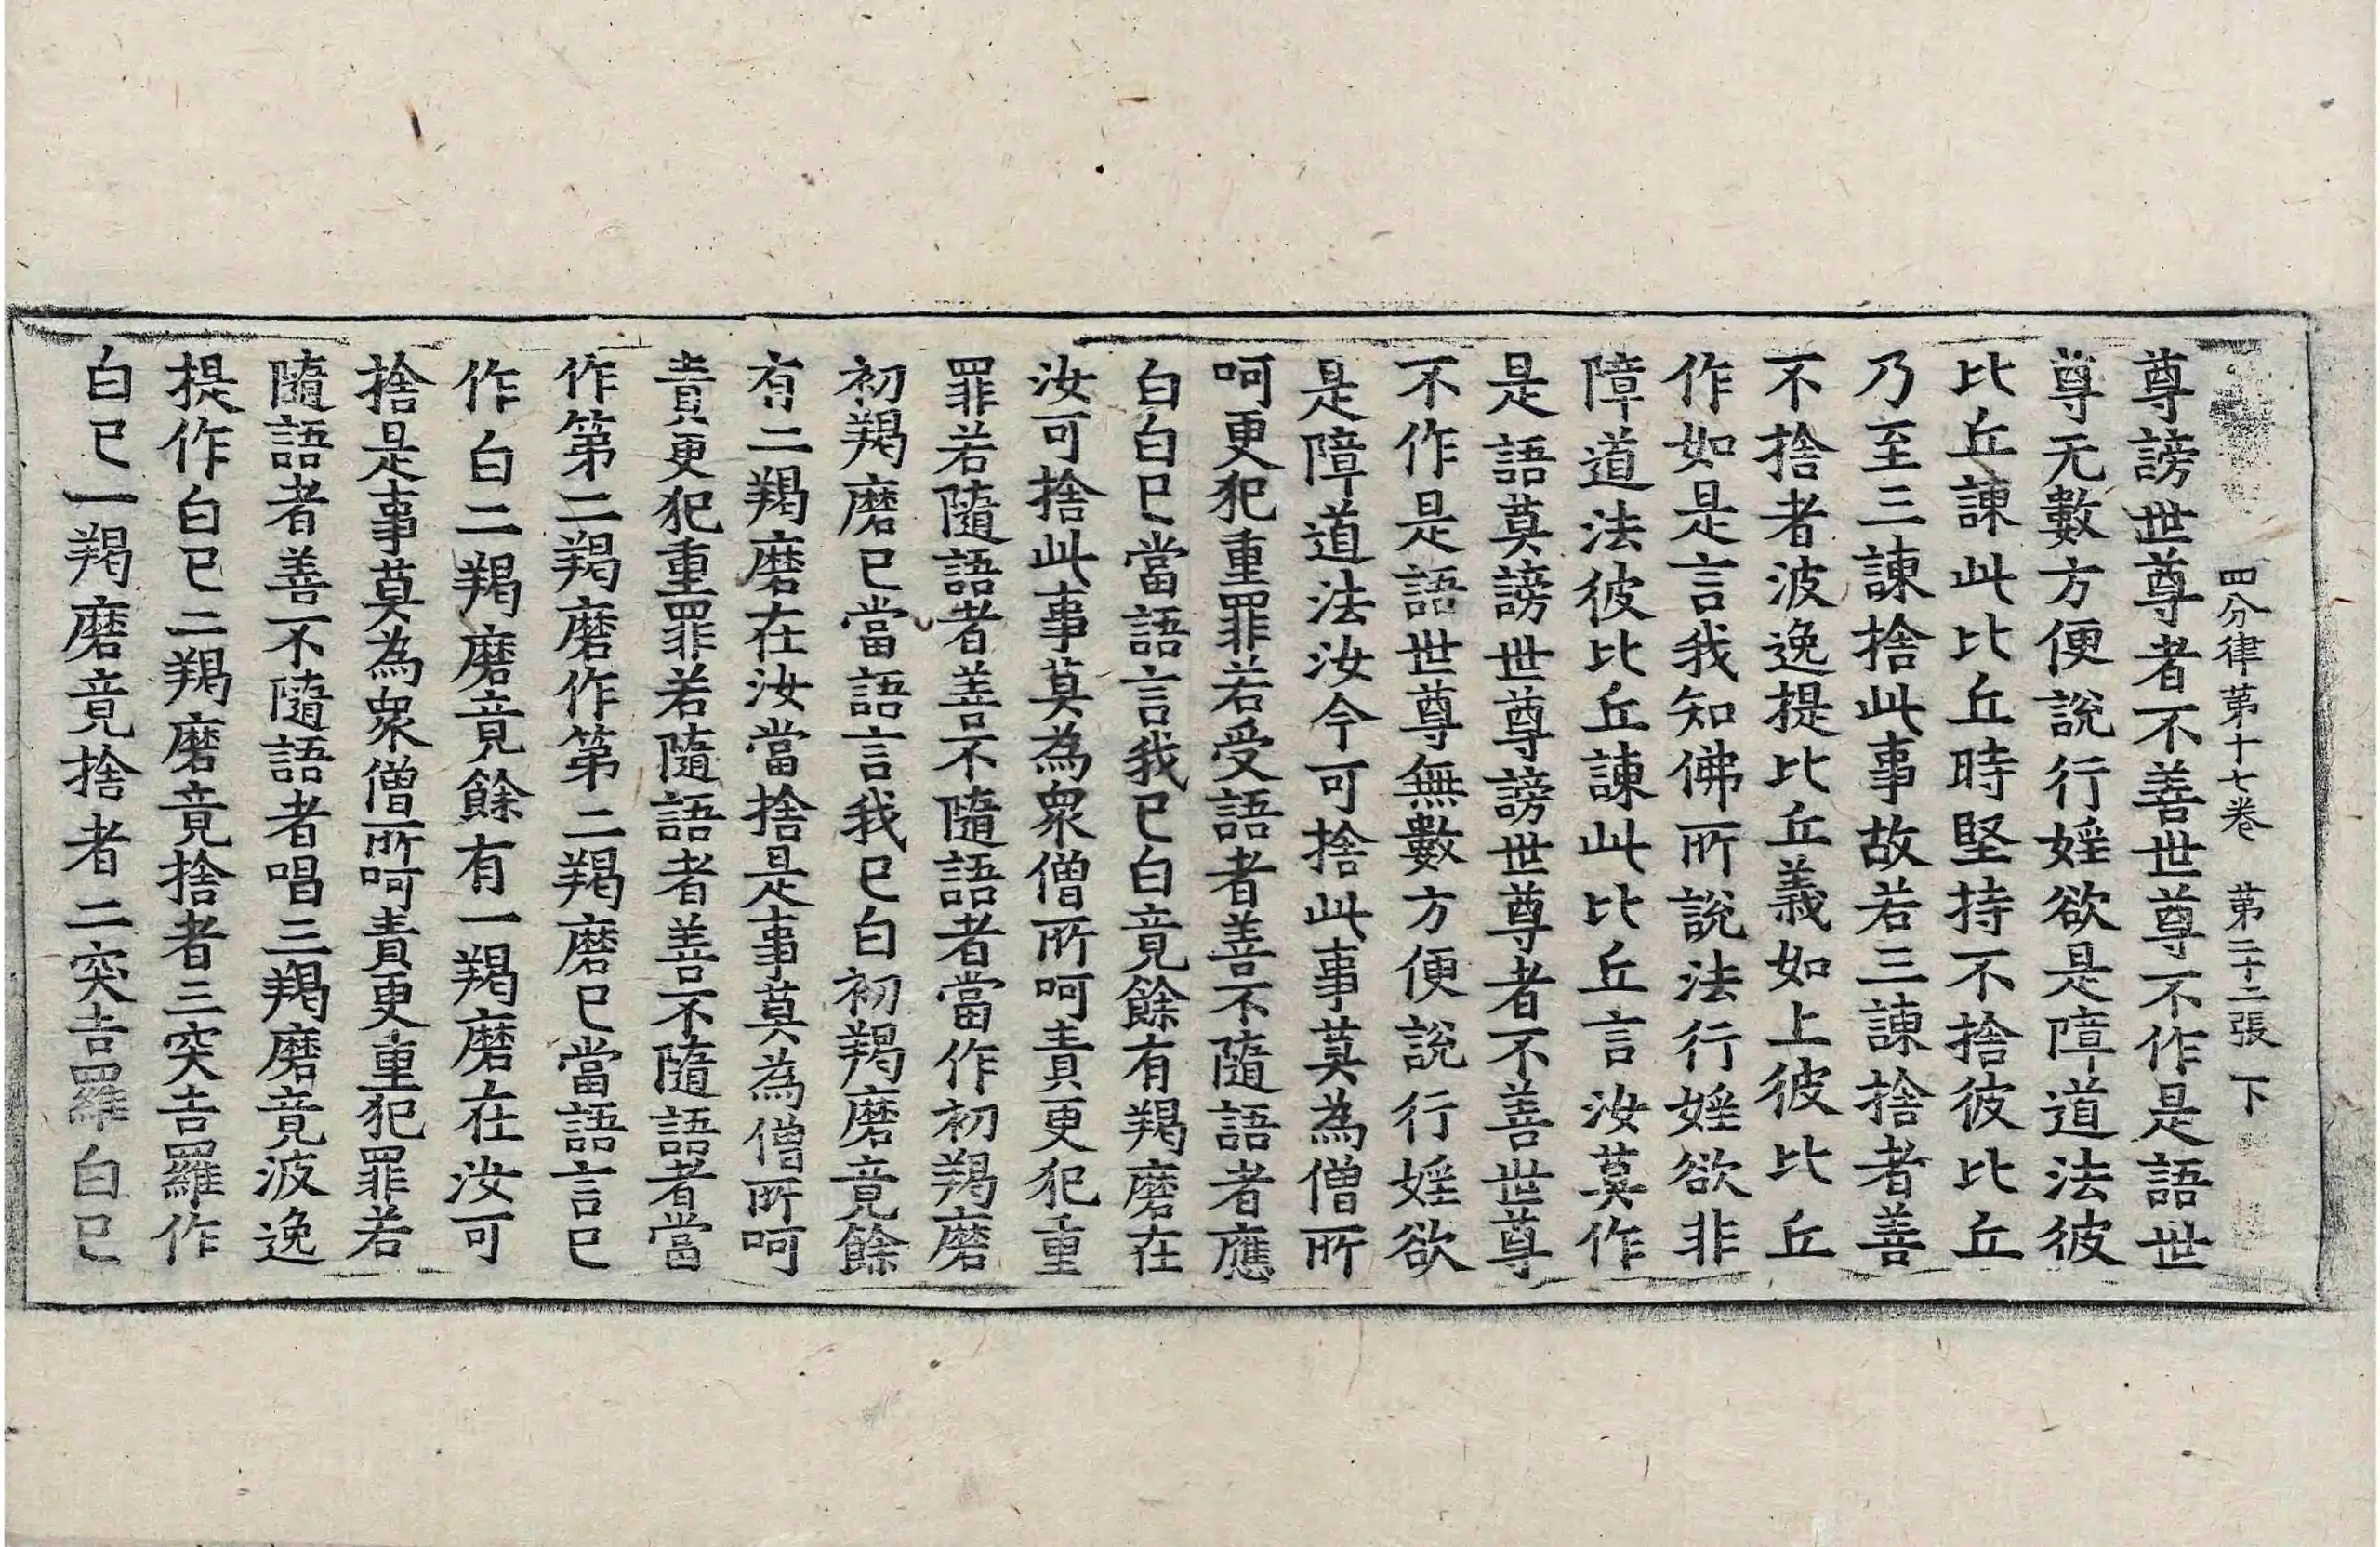 四分律第十七卷 第二十二張 下
尊謗世尊者不善世尊不作是語世
尊无數方便說行婬欲是障道法彼
比丘諫此比丘時堅持不捨彼比丘
乃至三諫捨此事故若三諫捨者善
不捨者波逸提比丘義如上彼比丘
作如是言我知佛所說法行婬欲非
障道法彼比丘諫此比丘言汝莫作
是語莫謗世尊謗世尊者不善世尊
不作是語世尊無數方便說行婬欲
是障道法汝今可捨此事莫為僧所
呵更犯重罪若受語者善不隨語者應
白白已當語言我已白竟餘有羯磨在
汝可捨此事莫為衆僧所呵責更犯重
罪若隨語者善不隨語者當作初羯磨
初羯磨已當語言我已白初羯磨竟餘
有二羯磨在汝當捨是事莫為僧所呵
責更犯重罪若隨語者善不隨語者當
作第二羯磨作第二羯磨已當語言已
作白二羯磨竟餘有一羯磨在汝可
捨是事莫為衆僧所呵責更重犯罪若
隨語者善不隨語者唱三羯磨竟波逸
提作白已二羯磨竟捨者三突吉羅作
白已一羯磨竟捨者二突吉羅白已